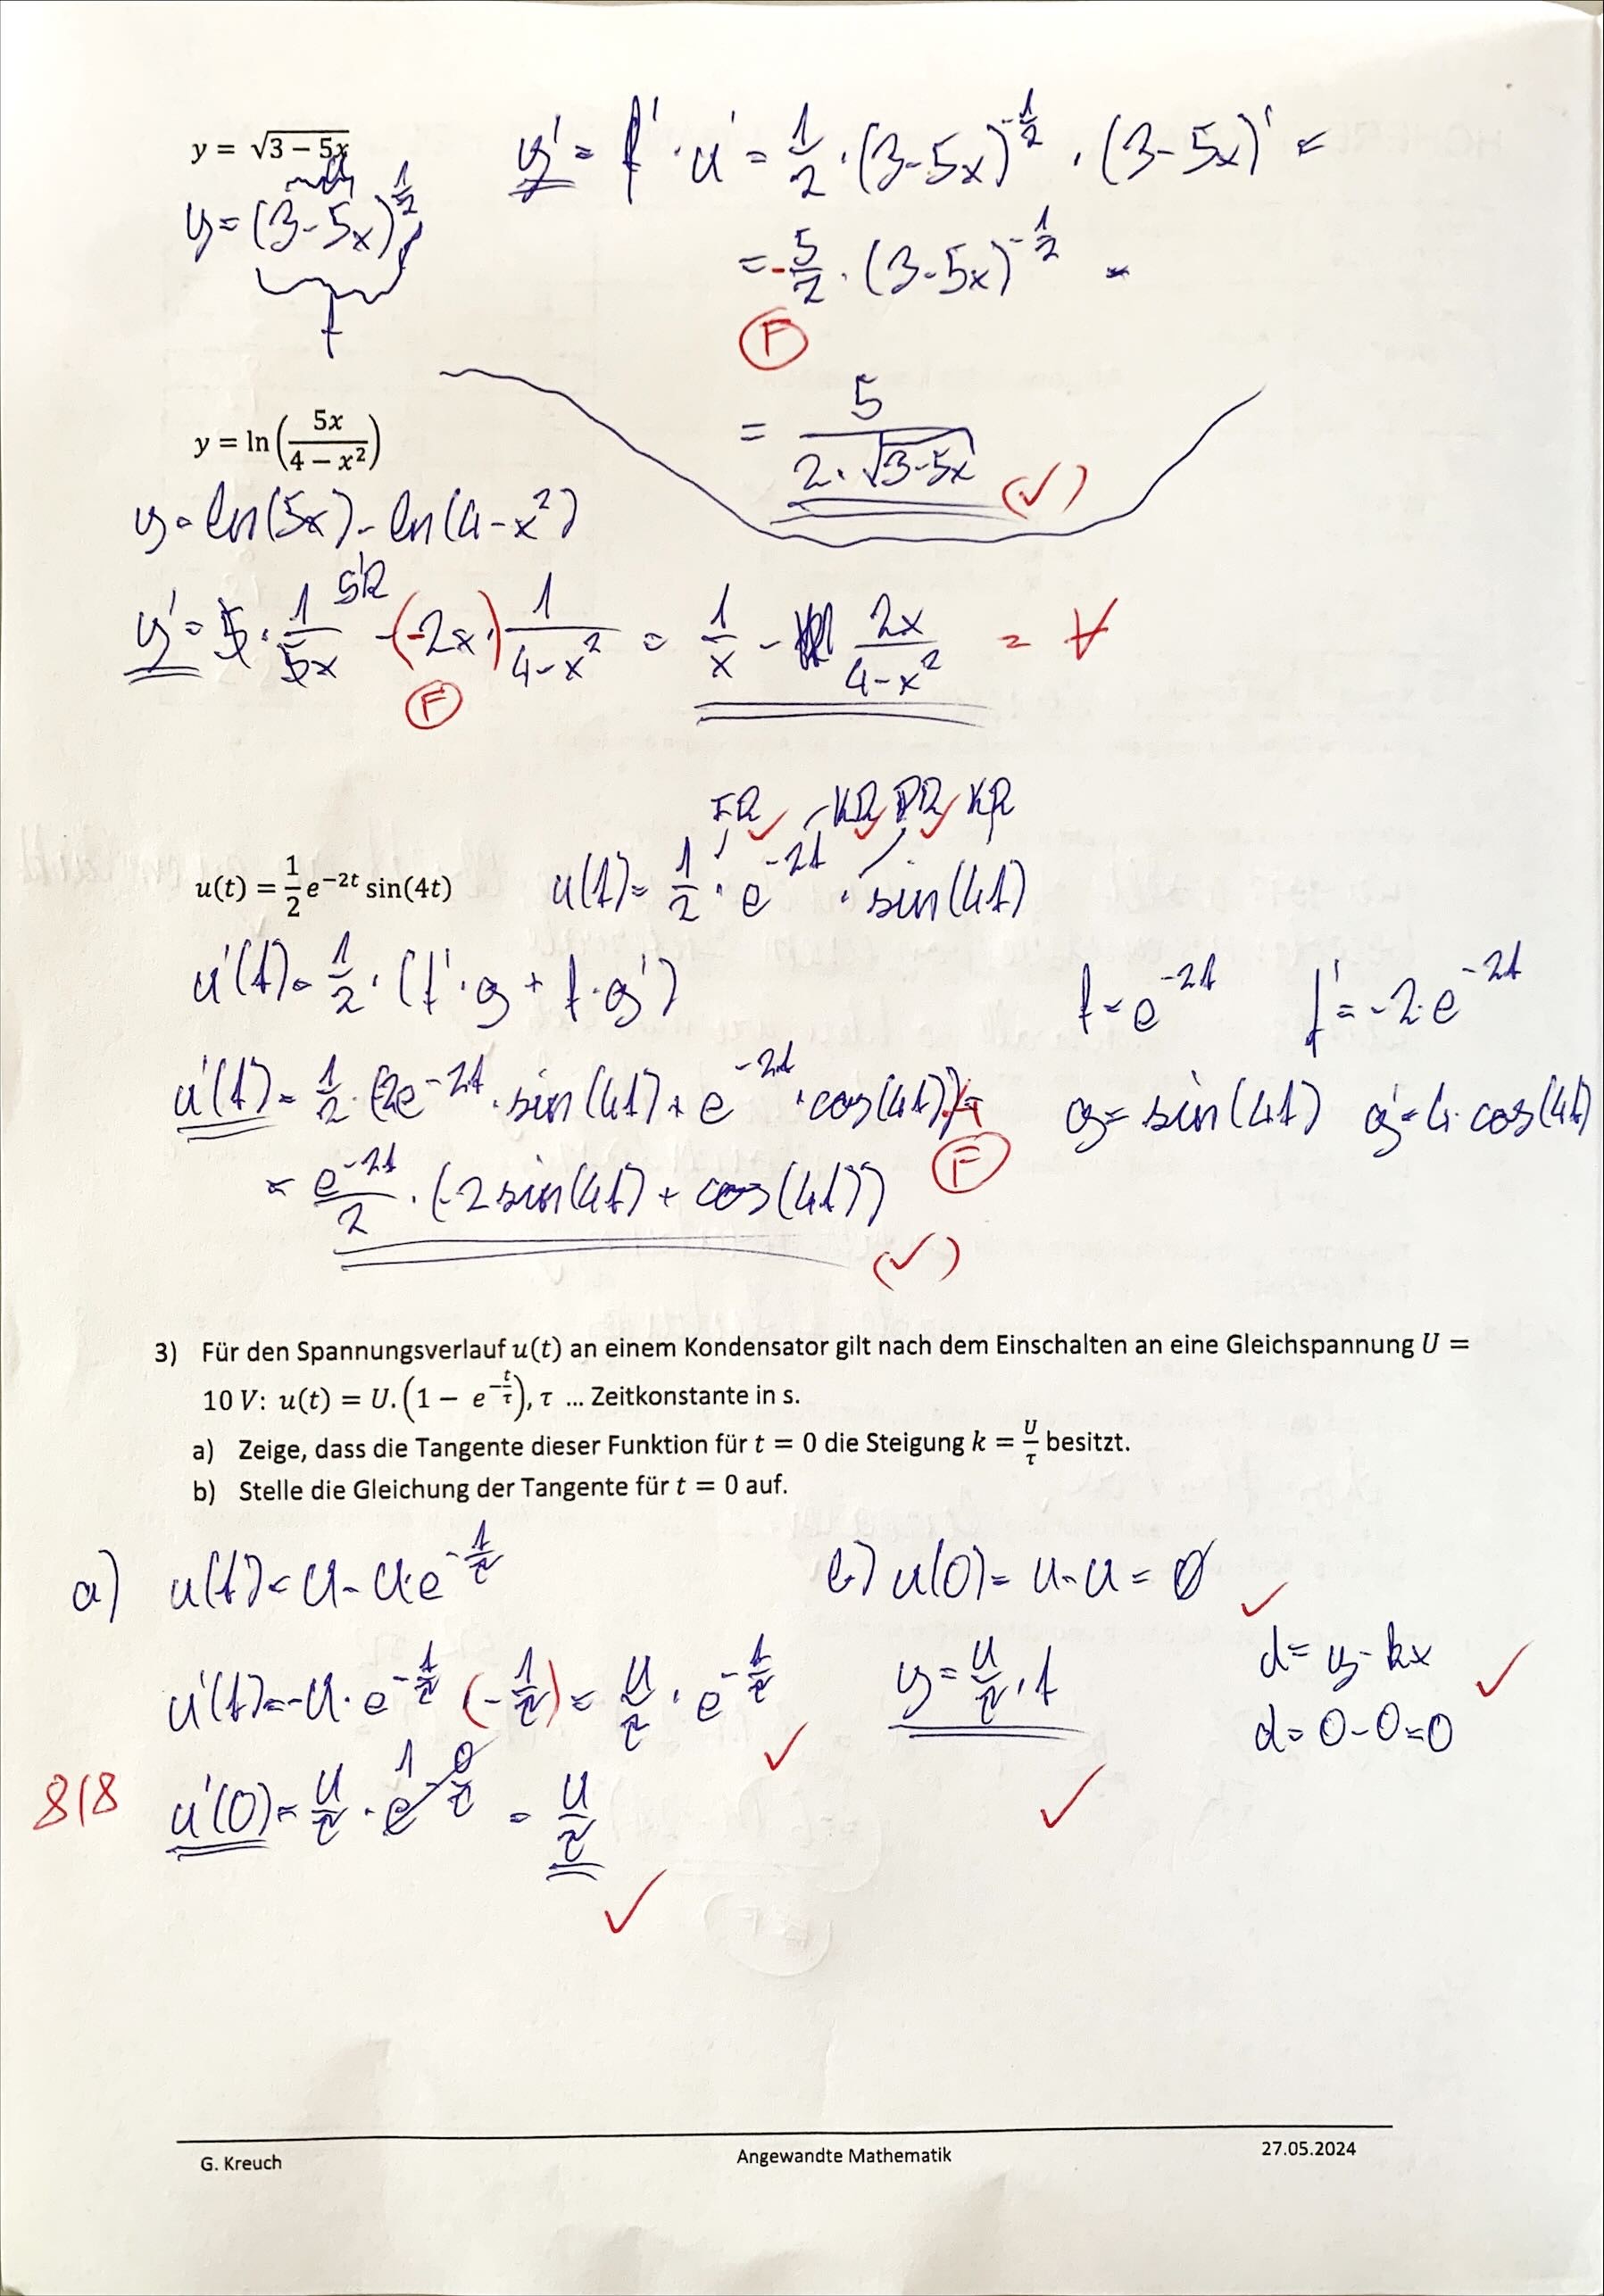 y = √(3 − 5x)
y' = f' · u' = 1/2 · (3-5x)^(-1/2) · (3-5x)' =
y = (3-5x)^(1/2)
f
= -5/2 · (3-5x)^(-1/2) =
F
= 5/(2·√(3-5x)) (✓)
y = ln(5x/(4 − x²))
y = ln(5x) - ln(4-x²)
SR
y' = 5 · 1/5x - (-2x) · 1/(4-x²) = 1/x - 2x/(4-x²) = ∀
F
FR ✓ KR ✓ PR ✓ KR
u(t) = 1/2 e^(−2t) sin(4t)
u(t) = 1/2 · e^(-2t) · sin(4t)
u'(t) = 1/2 · (f' · g + f · g')
f = e^(-2t) f' = -2·e^(-2t)
u'(t) = 1/2 · (-2e^(-2t) · sin(4t) + e^(-2t) · cos(4t)) ·4
g = sin(4t) g' = 4·cos(4t)
F
= e^(-2t)/2 · (-2sin(4t) + cos(4t))
(✓)
3) Für den Spannungsverlauf u(t) an einem Kondensator gilt nach dem Einschalten an eine Gleichspannung U =
10 V: u(t) = U.(1 − e^(−t/τ)), τ ... Zeitkonstante in s.
a) Zeige, dass die Tangente dieser Funktion für t = 0 die Steigung k = U/τ besitzt.
b) Stelle die Gleichung der Tangente für t = 0 auf.
a) u(t) = U - U·e^(-t/τ)
u'(t) = -U · e^(-t/τ) (-1/τ) = U/τ · e^(-t/τ) ✓
8/8 u'(0) = U/τ · e^(-0/τ) 1 = U/τ ✓
b) u(0) = U - U = 0 ✓
y = U/τ · t ✓
d = y - kx ✓
d = 0 - 0 = 0
G. Kreuch
Angewandte Mathematik
27.05.2024